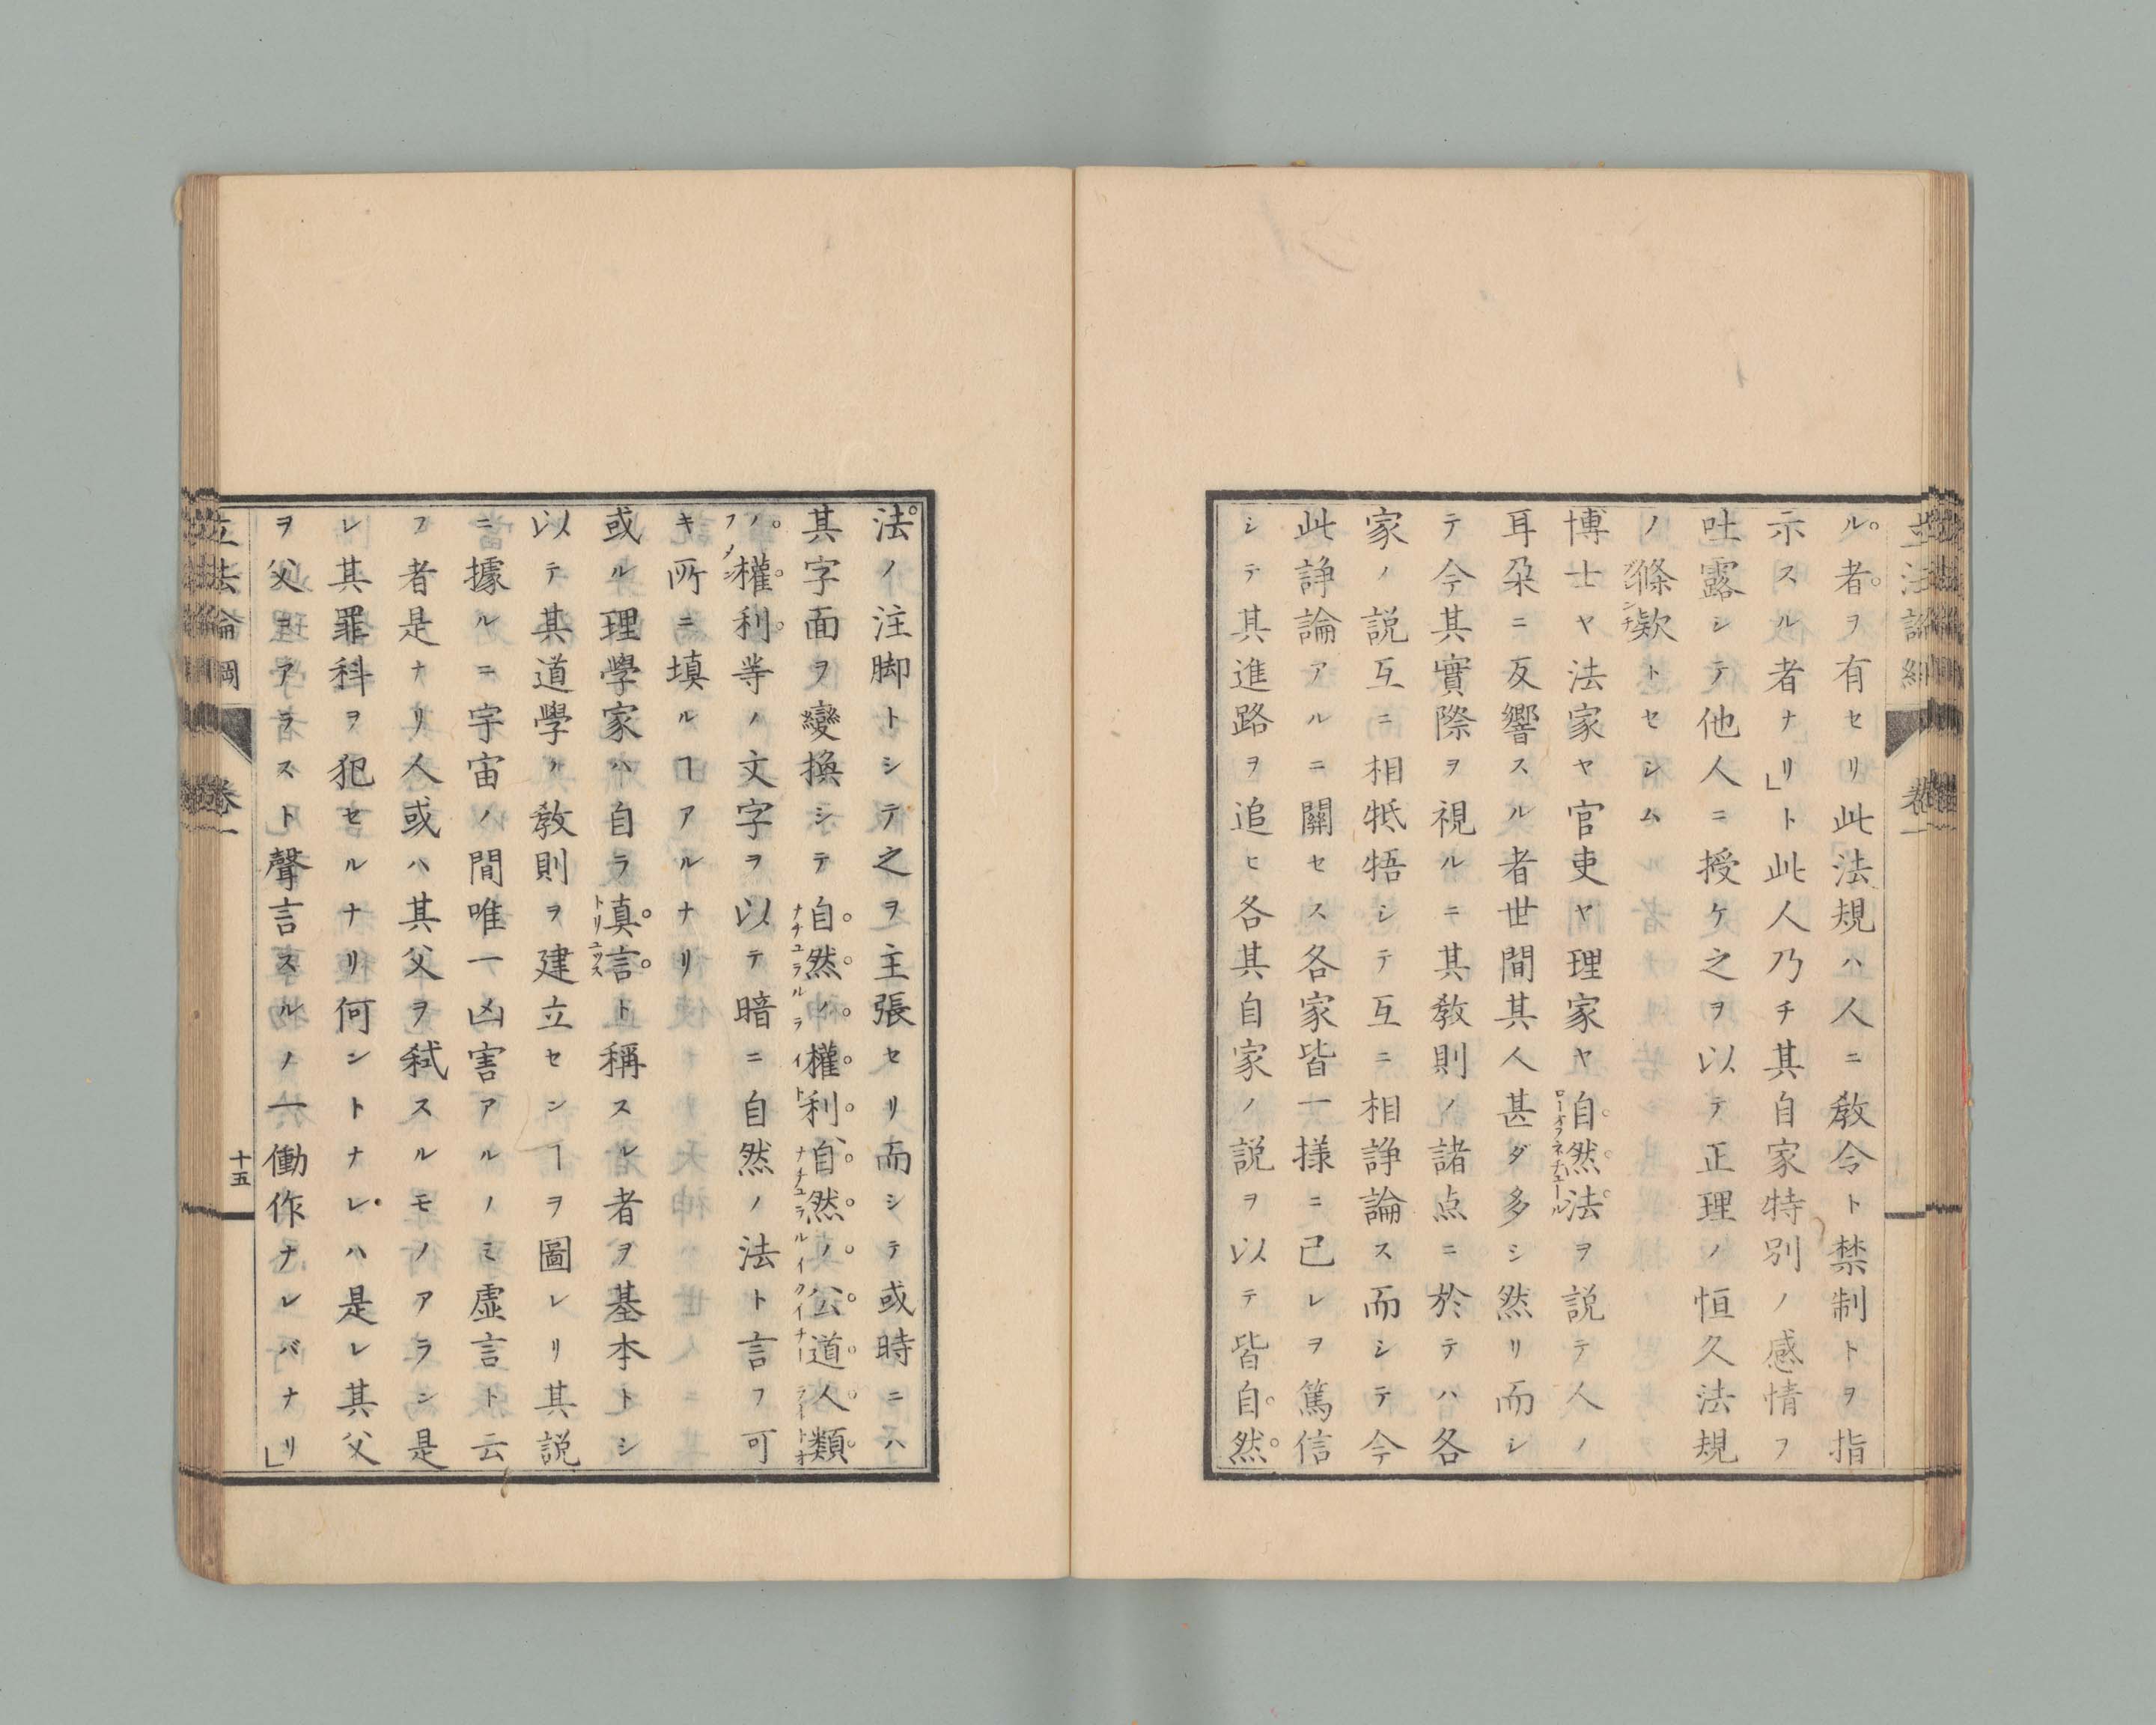 立法論綱
卷一
ル者ヲ有セリ此法規ハ人ニ敎令ト禁制トヲ指
示スル者ナリ」ト此人乃チ其自家特別ノ感情フ
吐露シテ他人ニ授ケ之ヲ以テ正理ノ恒久法規
ノ條欵トセシム
博士ヤ法家ヤ官吏ヤ理家ヤ自然法ヲ説テ人ノ
ローオフネチュール
耳朶ニ反響スル者世間其人甚ダ多シ然リ而シ
テ今其實際ヲ視ルニ其敎則ノ諸点ニ於テハ各
家ノ説互ニ相牴牾シテ互ニ相諍論ス而シテ今
此諍論アルニ關セス各家皆一様ニ己レヲ篤信
シテ其進路ヲ追ヒ各其自家ノ説ヲ以テ皆自然
法ノ注脚トシテ之ヲ主張セリ而シテ或時ニハ
其字面ヲ變換シテ自然ノ權利、自然ノ公道、人類
ナチュラルライト ナチュラルイクイチー ライトオ
ノ權利等ノ文字ヲ以テ暗ニ自然ノ法ト言フ可
フメン
キ所ニ填ルヿアルナリ
或ル理學家ハ自ラ真言ト稱スル者ヲ基本トシ
トリユツス
以テ其道學ノ敎則ヲ建立センヿヲ圖レリ其説
ニ據ルニ宇宙ノ間唯一凶害アルノミ虚言ト云
フ者是ナリ人或ハ其父ヲ弑スルモノアラン是
レ其罪科ヲ犯セルナリ何ントナレハ是レ其父
ヲ父ニアラスト聲言スルノ一働作ナレバナリ」
立法論綱
卷一
十五